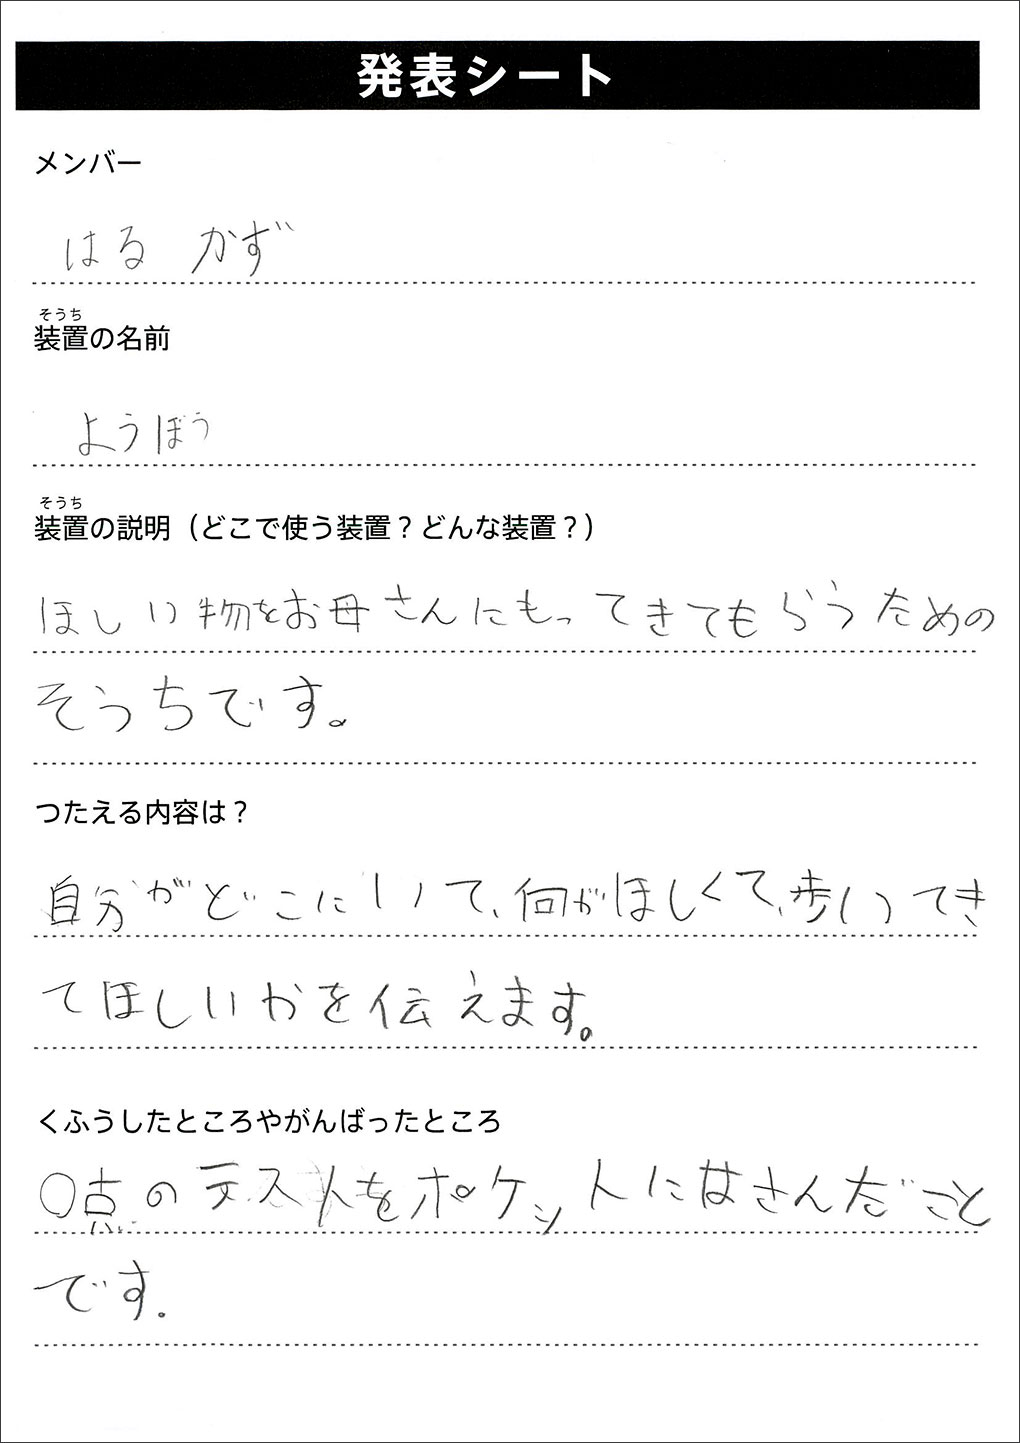 発表シート
メンバー
はる かず
そうち
装置の名前
ようぼう
そうち
装置の説明（どこで使う装置？どんな装置？）
ほしい物をお母さんにもってきてもらうための
そうちです。
つたえる内容は？
自分がどこにいて、何がほしくて、歩いってき
てほしいかを伝えます。
くふうしたところやがんばったところ
○点のテストをポケットにはさんだこと
です。